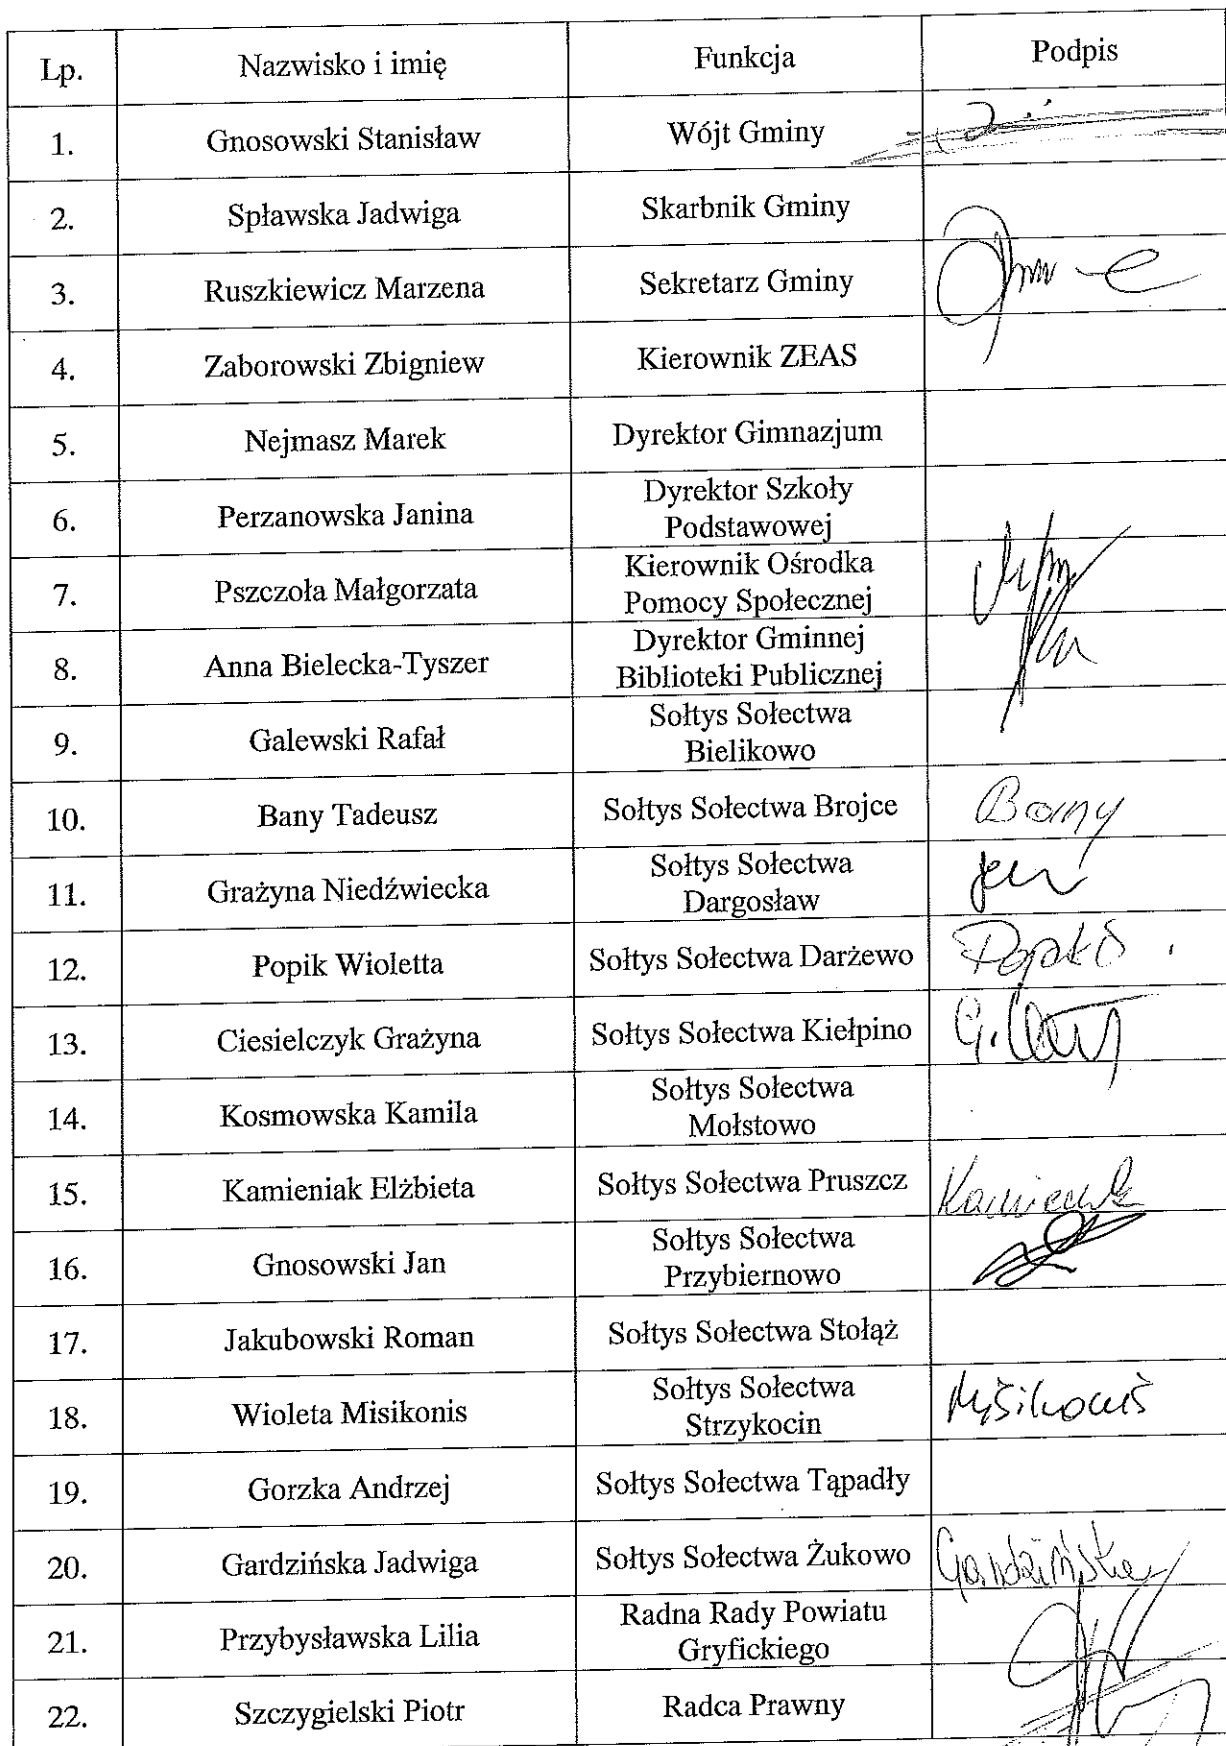 Lp. Nazwisko i imię Funkcja Podpis
1. Gnosowski Stanisław Wójt Gminy
2. Spławska Jadwiga Skarbnik Gminy
3. Ruszkiewicz Marzena Sekretarz Gminy
4. Zaborowski Zbigniew Kierownik ZEAS
5. Nejmasz Marek Dyrektor Gimnazjum
6. Perzanowska Janina Dyrektor Szkoły
Podstawowej
7. Pszczoła Małgorzata Kierownik Ośrodka
Pomocy Społecznej
8. Anna Bielecka-Tyszer Dyrektor Gminnej
Biblioteki Publicznej
9. Galewski Rafał Sołtys Sołectwa
Bielikowo
10. Bany Tadeusz Sołtys Sołectwa Brojce Bany
11. Grażyna Niedźwiecka Sołtys Sołectwa
Dargosław
12. Popik Wioletta Sołtys Sołectwa Darżewo
13. Ciesielczyk Grażyna Sołtys Sołectwa Kiełpino
14. Kosmowska Kamila Sołtys Sołectwa
Mołstowo
15. Kamieniak Elżbieta Sołtys Sołectwa Pruszcz
16. Gnosowski Jan Sołtys Sołectwa
Przybiernowo
17. Jakubowski Roman Sołtys Sołectwa Stołąż
18. Wioleta Misikonis Sołtys Sołectwa
Strzykocin Misikonis
19. Gorzka Andrzej Sołtys Sołectwa Tąpadły
20. Gardzińska Jadwiga Sołtys Sołectwa Żukowo Gardzińska
21. Przybysławska Lilia Radna Rady Powiatu
Gryfickiego
22. Szczygielski Piotr Radca Prawny